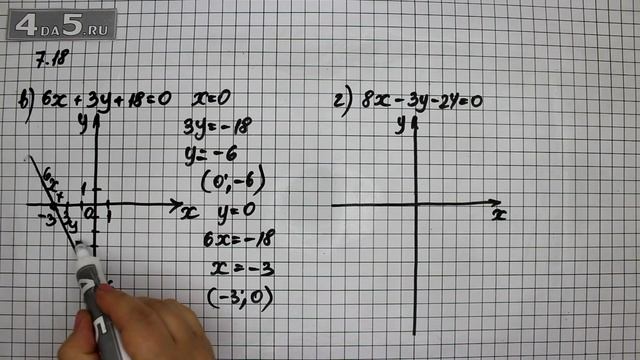 4 DA 5.RU
7.18
в) 6x + 3y + 18 = 0
x = 0
3y = -18
y = -6
(0; -6)
y = 0
6x = -18
x = -3
(-3; 0)
y
1
-3
0
1
x
6x
3y
г) 8x - 3y - 24 = 0
y
x